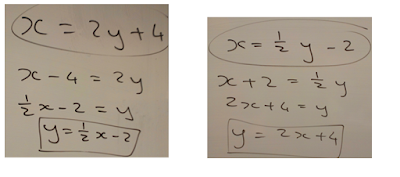 x = 2y + 4
x - 4 = 2y
½x - 2 = y
y = ½x - 2
x = ½ y - 2
x + 2 = ½ y
2x + 4 = y
y = 2x + 4